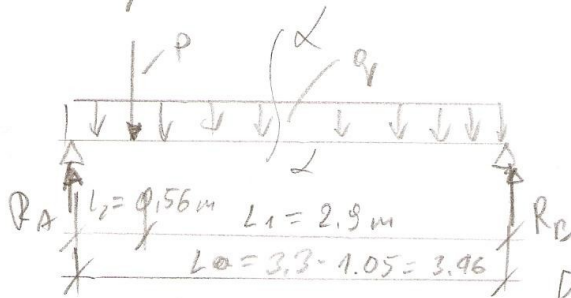 P α q
α
R_A l₂ = 0,56 m L1 = 2,9 m R_B
L0 = 3,3 · 1.05 = 3,46